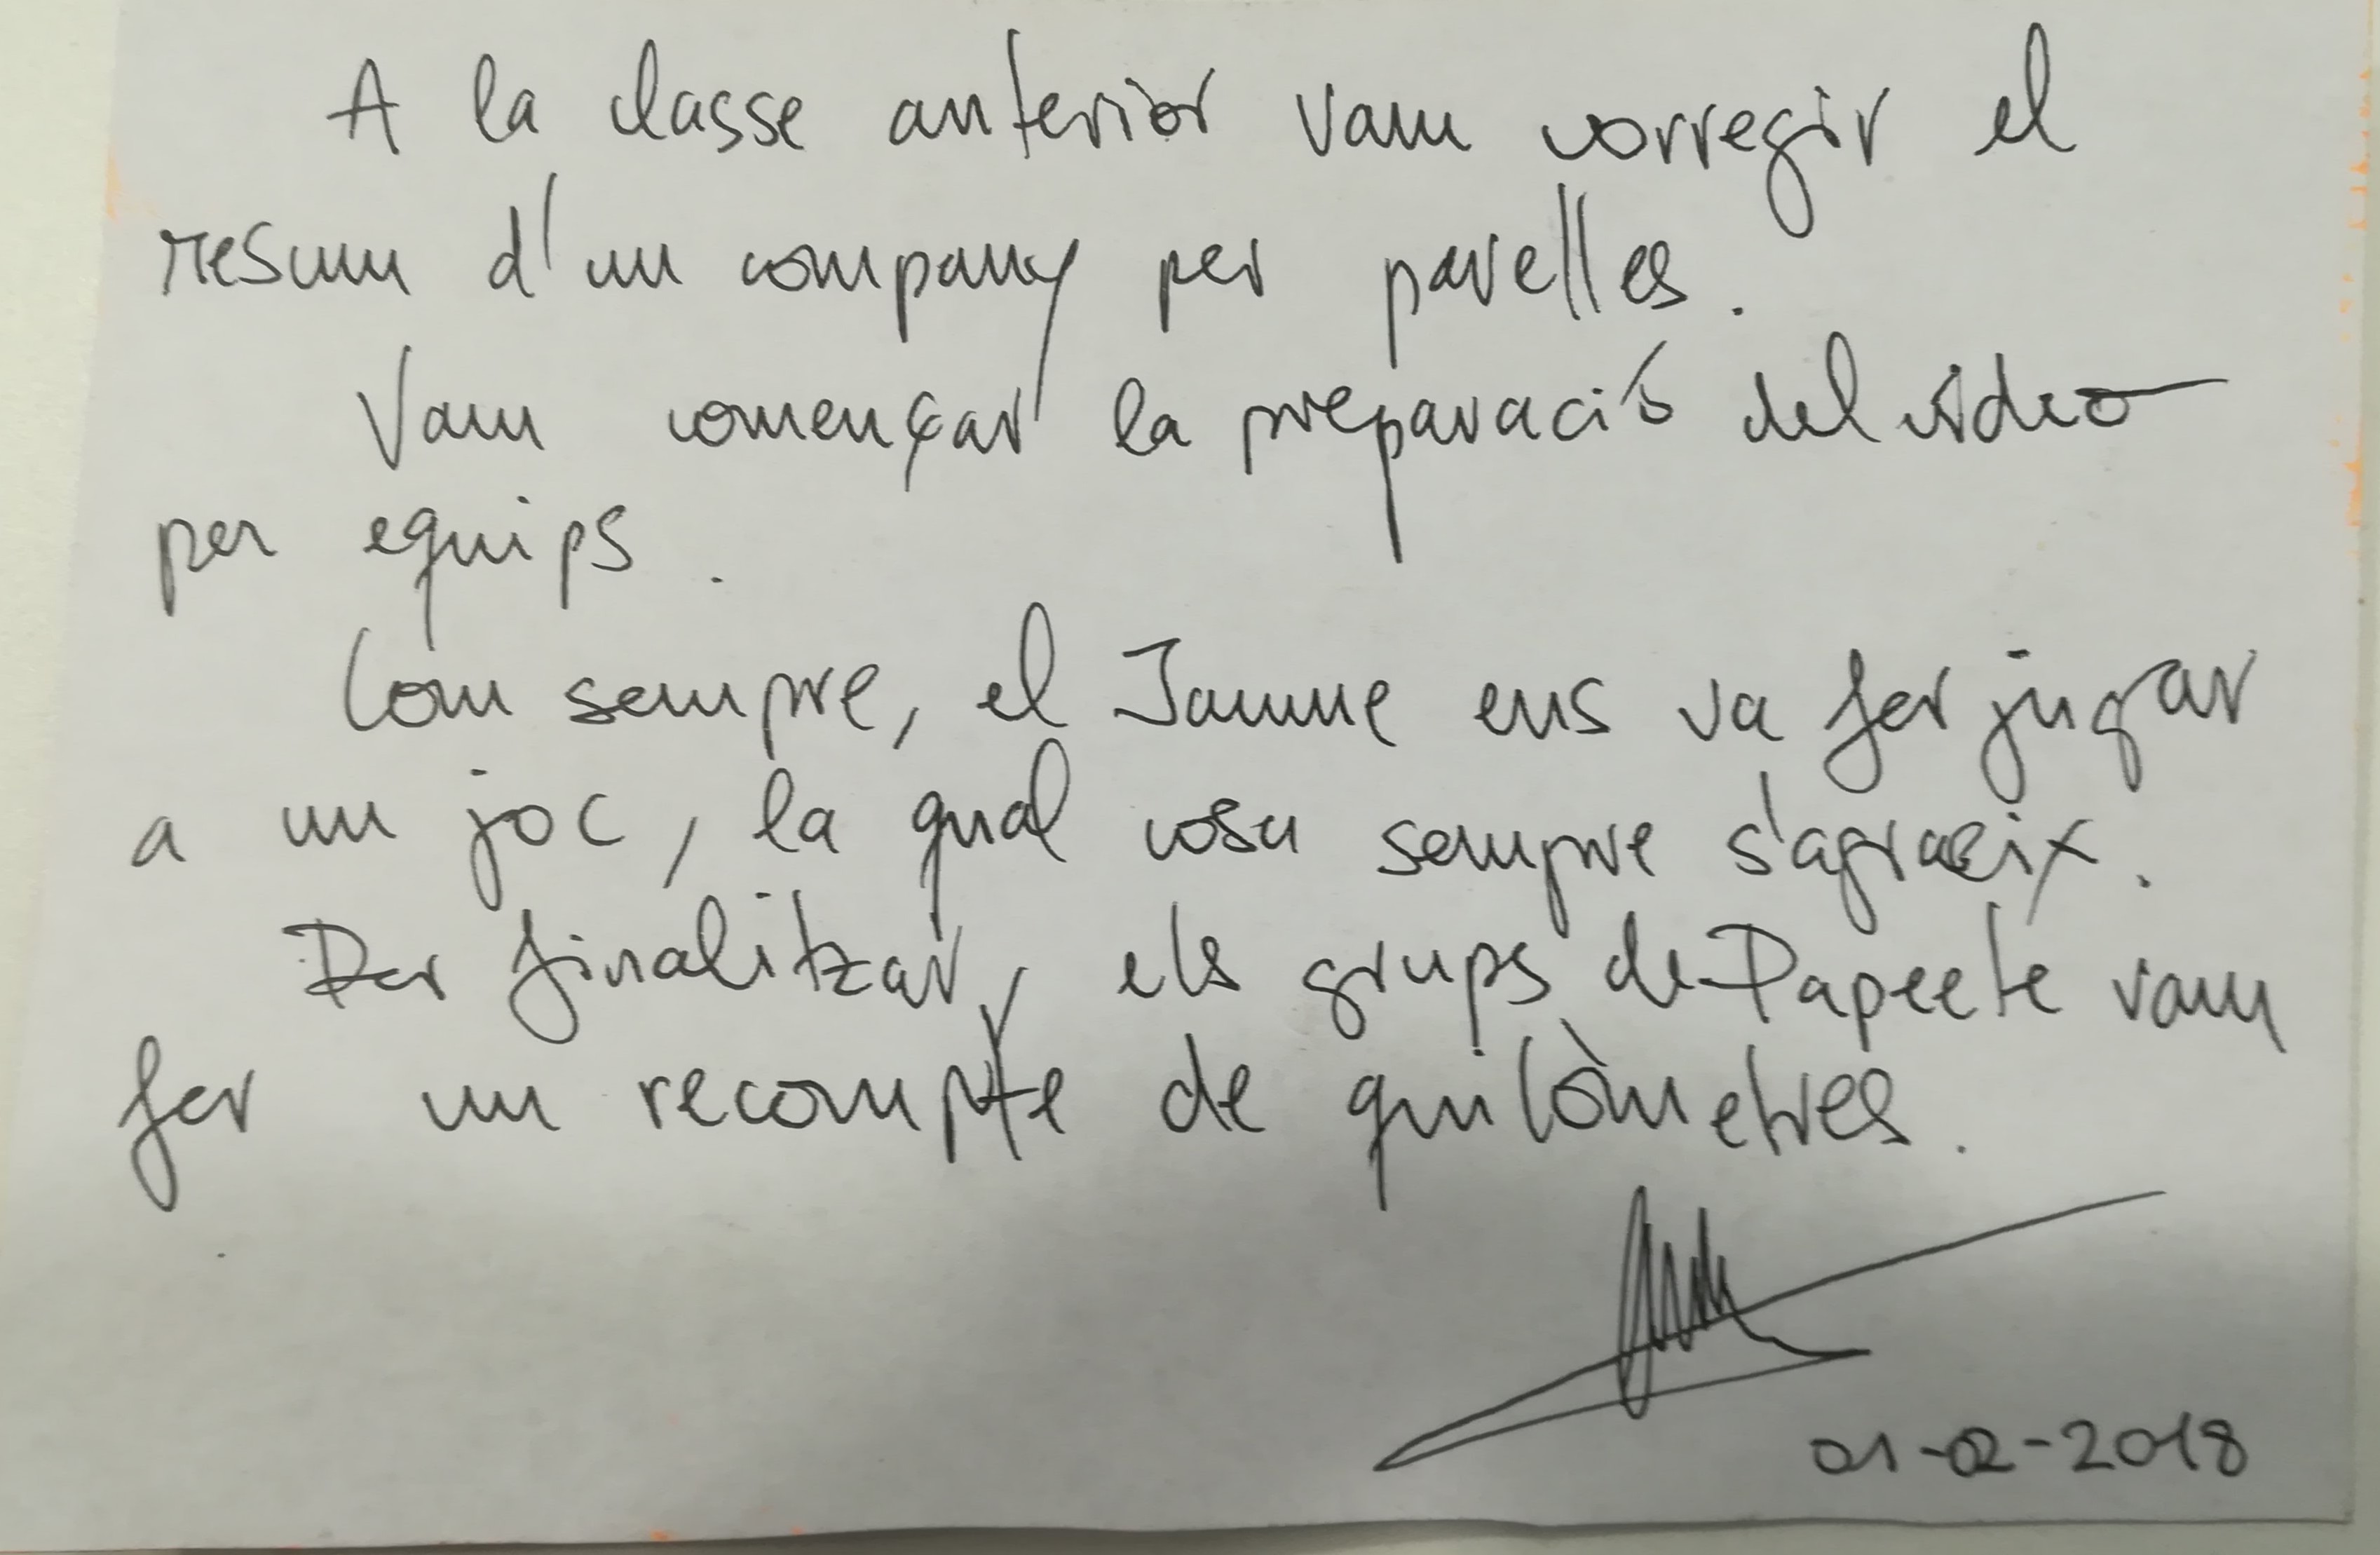 A la classe anterior vam corregir el
resum d'un company per parelles.
Vam començar la preparació del vídeo
per equips.
Com sempre, el Jaume ens va fer jugar
a un joc, la qual cosa sempre s'agraeix.
Per finalitzar, els grups de Papeete vam
fer un recompte de quilòmetres.
01-02-2018